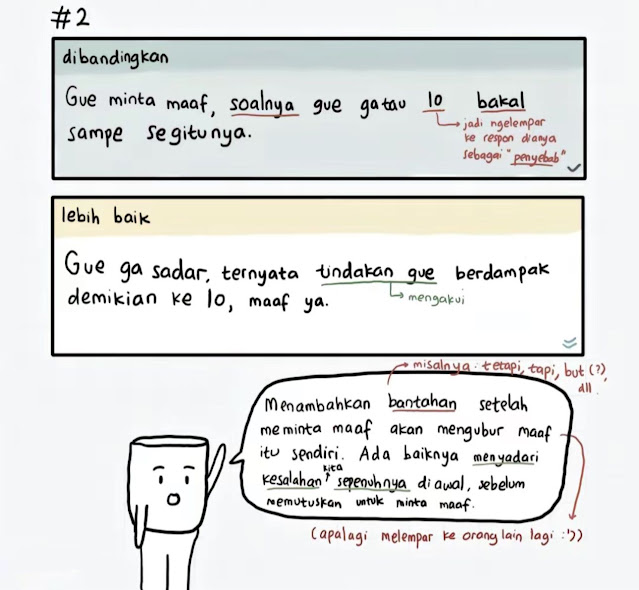 #2
dibandingkan
Gue minta maaf, soalnya gue gatau lo bakal
sampe segitunya.
jadi ngelempar
ke respon dianya
sebagai "penyebab"
lebih baik
Gue ga sadar, ternyata tindakan gue berdampak
demikian ke lo, maaf ya.
mengakui
misalnya: tetapi, tapi, but (?)
dll.
Menambahkan bantahan setelah
meminta maaf akan mengubur maaf
itu sendiri. Ada baiknya menyadari
kesalahan kita sepenuhnya di awal, sebelum
memutuskan untuk minta maaf.
(apalagi melempar ke orang lain lagi :'))